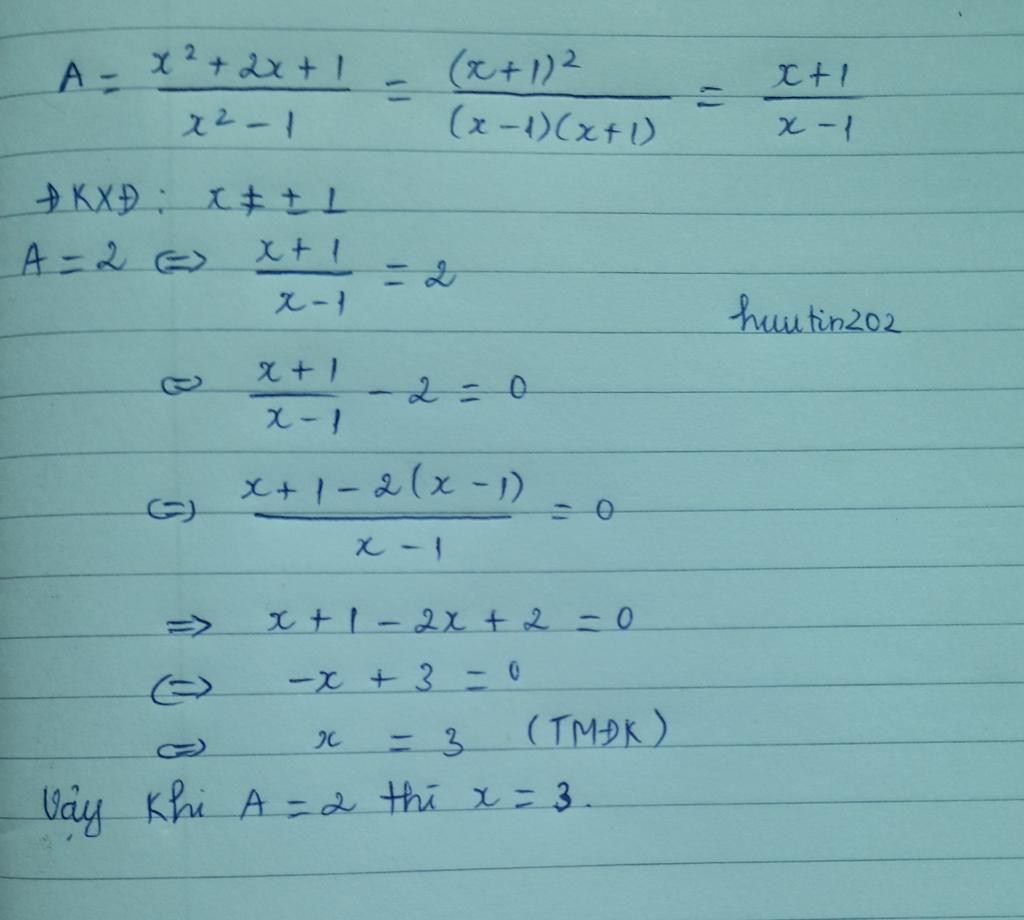 A = x² + 2x + 1 / x² - 1 = (x+1)² / (x-1)(x+1) = x+1 / x-1
ĐKXĐ: x ≠ ± 1
A = 2 ⇔ x+1 / x-1 = 2
huutin202
⇔ x+1 / x-1 - 2 = 0
⇔ x+1-2(x-1) / x-1 = 0
⇒ x+1-2x+2 = 0
⇔ -x + 3 = 0
⇔ x = 3 (TMĐK)
Vậy khi A = 2 thì x = 3.